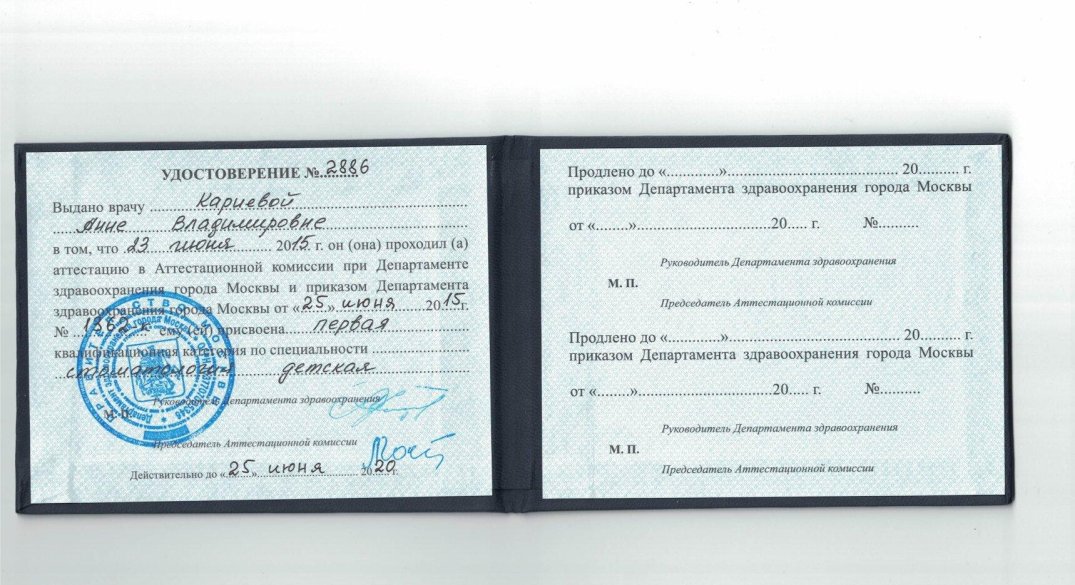 УДОСТОВЕРЕНИЕ №2886
Выдано врачу Кариевой
Анне Владимировне
в том, что 23 июня 2015 г. он (она) проходил (а)
аттестацию в Аттестационной комиссии при Департаменте
здравоохранения города Москвы и приказом Департамента
здравоохранения города Москвы от «25» июня 2015г.
№ 1362 к ему (ей) присвоена первая
квалификационная категория по специальности
стоматология детская
Руководитель Департамента здравоохранения
М. П.
Председатель Аттестационной комиссии
Действительно до «25» июня 2020 г.
Продлено до «.............»........................................... 20.......... г.
приказом Департамента здравоохранения города Москвы
от «........»..................................20..... г. №..........
Руководитель Департамента здравоохранения
М. П.
Председатель Аттестационной комиссии
Продлено до «.............»........................................... 20.......... г.
приказом Департамента здравоохранения города Москвы
от «........»..................................20..... г. №..........
Руководитель Департамента здравоохранения
М. П.
Председатель Аттестационной комиссии